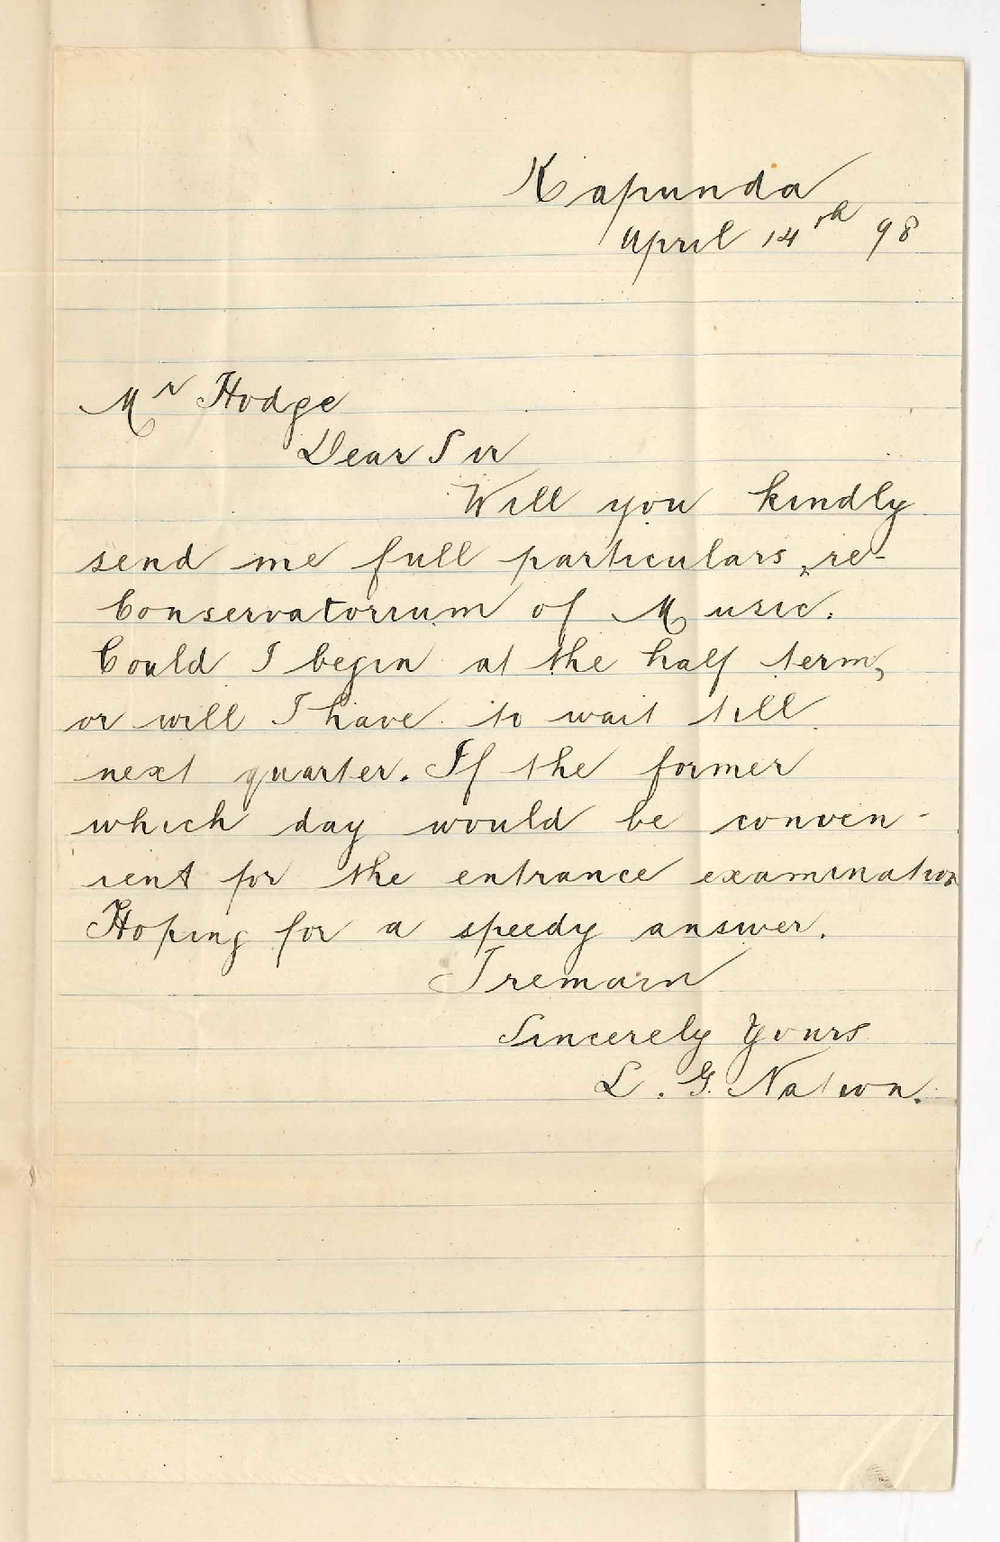 Kapunda
April 14th 98
Mr Hodge
Dear Sir
Will you kindly
send me full particulars, re-
Conservatorium of Music.
Could I begin at the half term,
or will I have to wait till
next quarter. If the former
which day would be conven-
ient for the entrance examination
Hoping for a speedy answer.
I remain
Sincerely Yours
L. G. Nation.